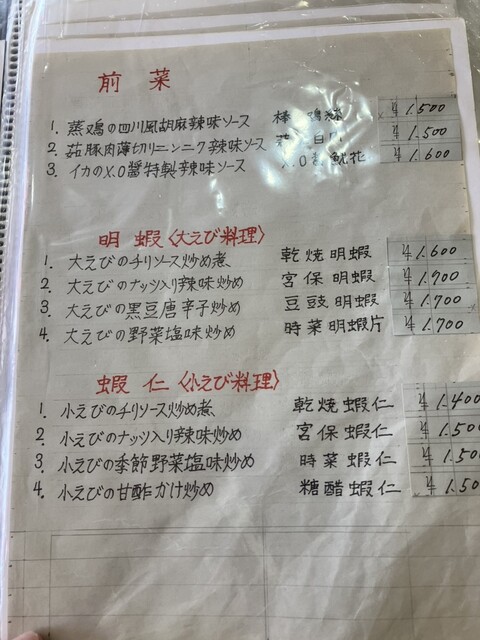 前菜
1. 蒸鶏の四川風胡麻辣味ソース 棒 ¥1.500
2. 茹豚肉薄切りニンニク辣味ソース ¥1.500
3. イカのX.O醤特製辣味ソース X.O醤魷花 ¥1.600
明蝦〈大えび料理〉
1. 大えびのチリソース炒め煮 乾焼明蝦 ¥1.600
2. 大えびのナッツ入り辣味炒め 宮保明蝦 ¥1.700
3. 大えびの黒豆唐辛子炒め 豆豉明蝦 ¥1.700
4. 大えびの野菜塩味炒め 時菜明蝦片 ¥1.700
蝦仁〈小えび料理〉
1. 小えびのチリソース炒め煮 乾焼蝦仁 ¥1.400
2. 小えびのナッツ入り辣味炒め 宮保蝦仁 ¥1.50
3. 小えびの季節野菜塩味炒め 時菜蝦仁 ¥1.50
4. 小えびの甘酢かけ炒め 糖醋蝦仁 ¥1.50